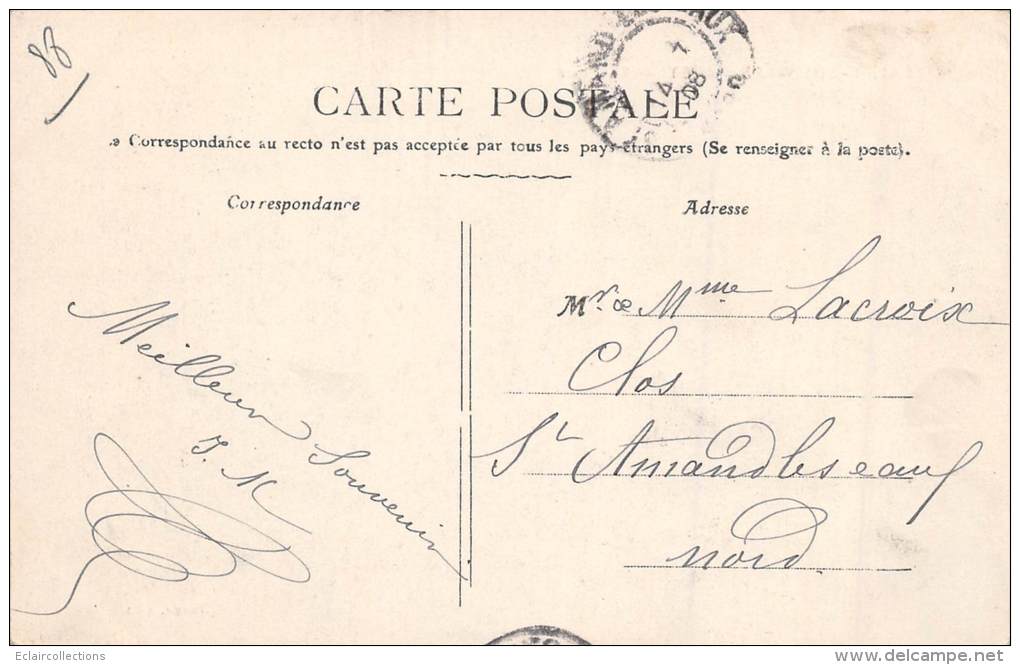 88
CARTE POSTALE
Correspondance au recto n'est pas acceptée par tous les pays étrangers (Se renseigner à la poste).
Correspondance
Adresse
Mr. & Mme Lacroix
Clos
St Amand les eaux
Nord
Meilleur Souvenir
J. M
4
08
Eclaircollections
www.delcampe.net